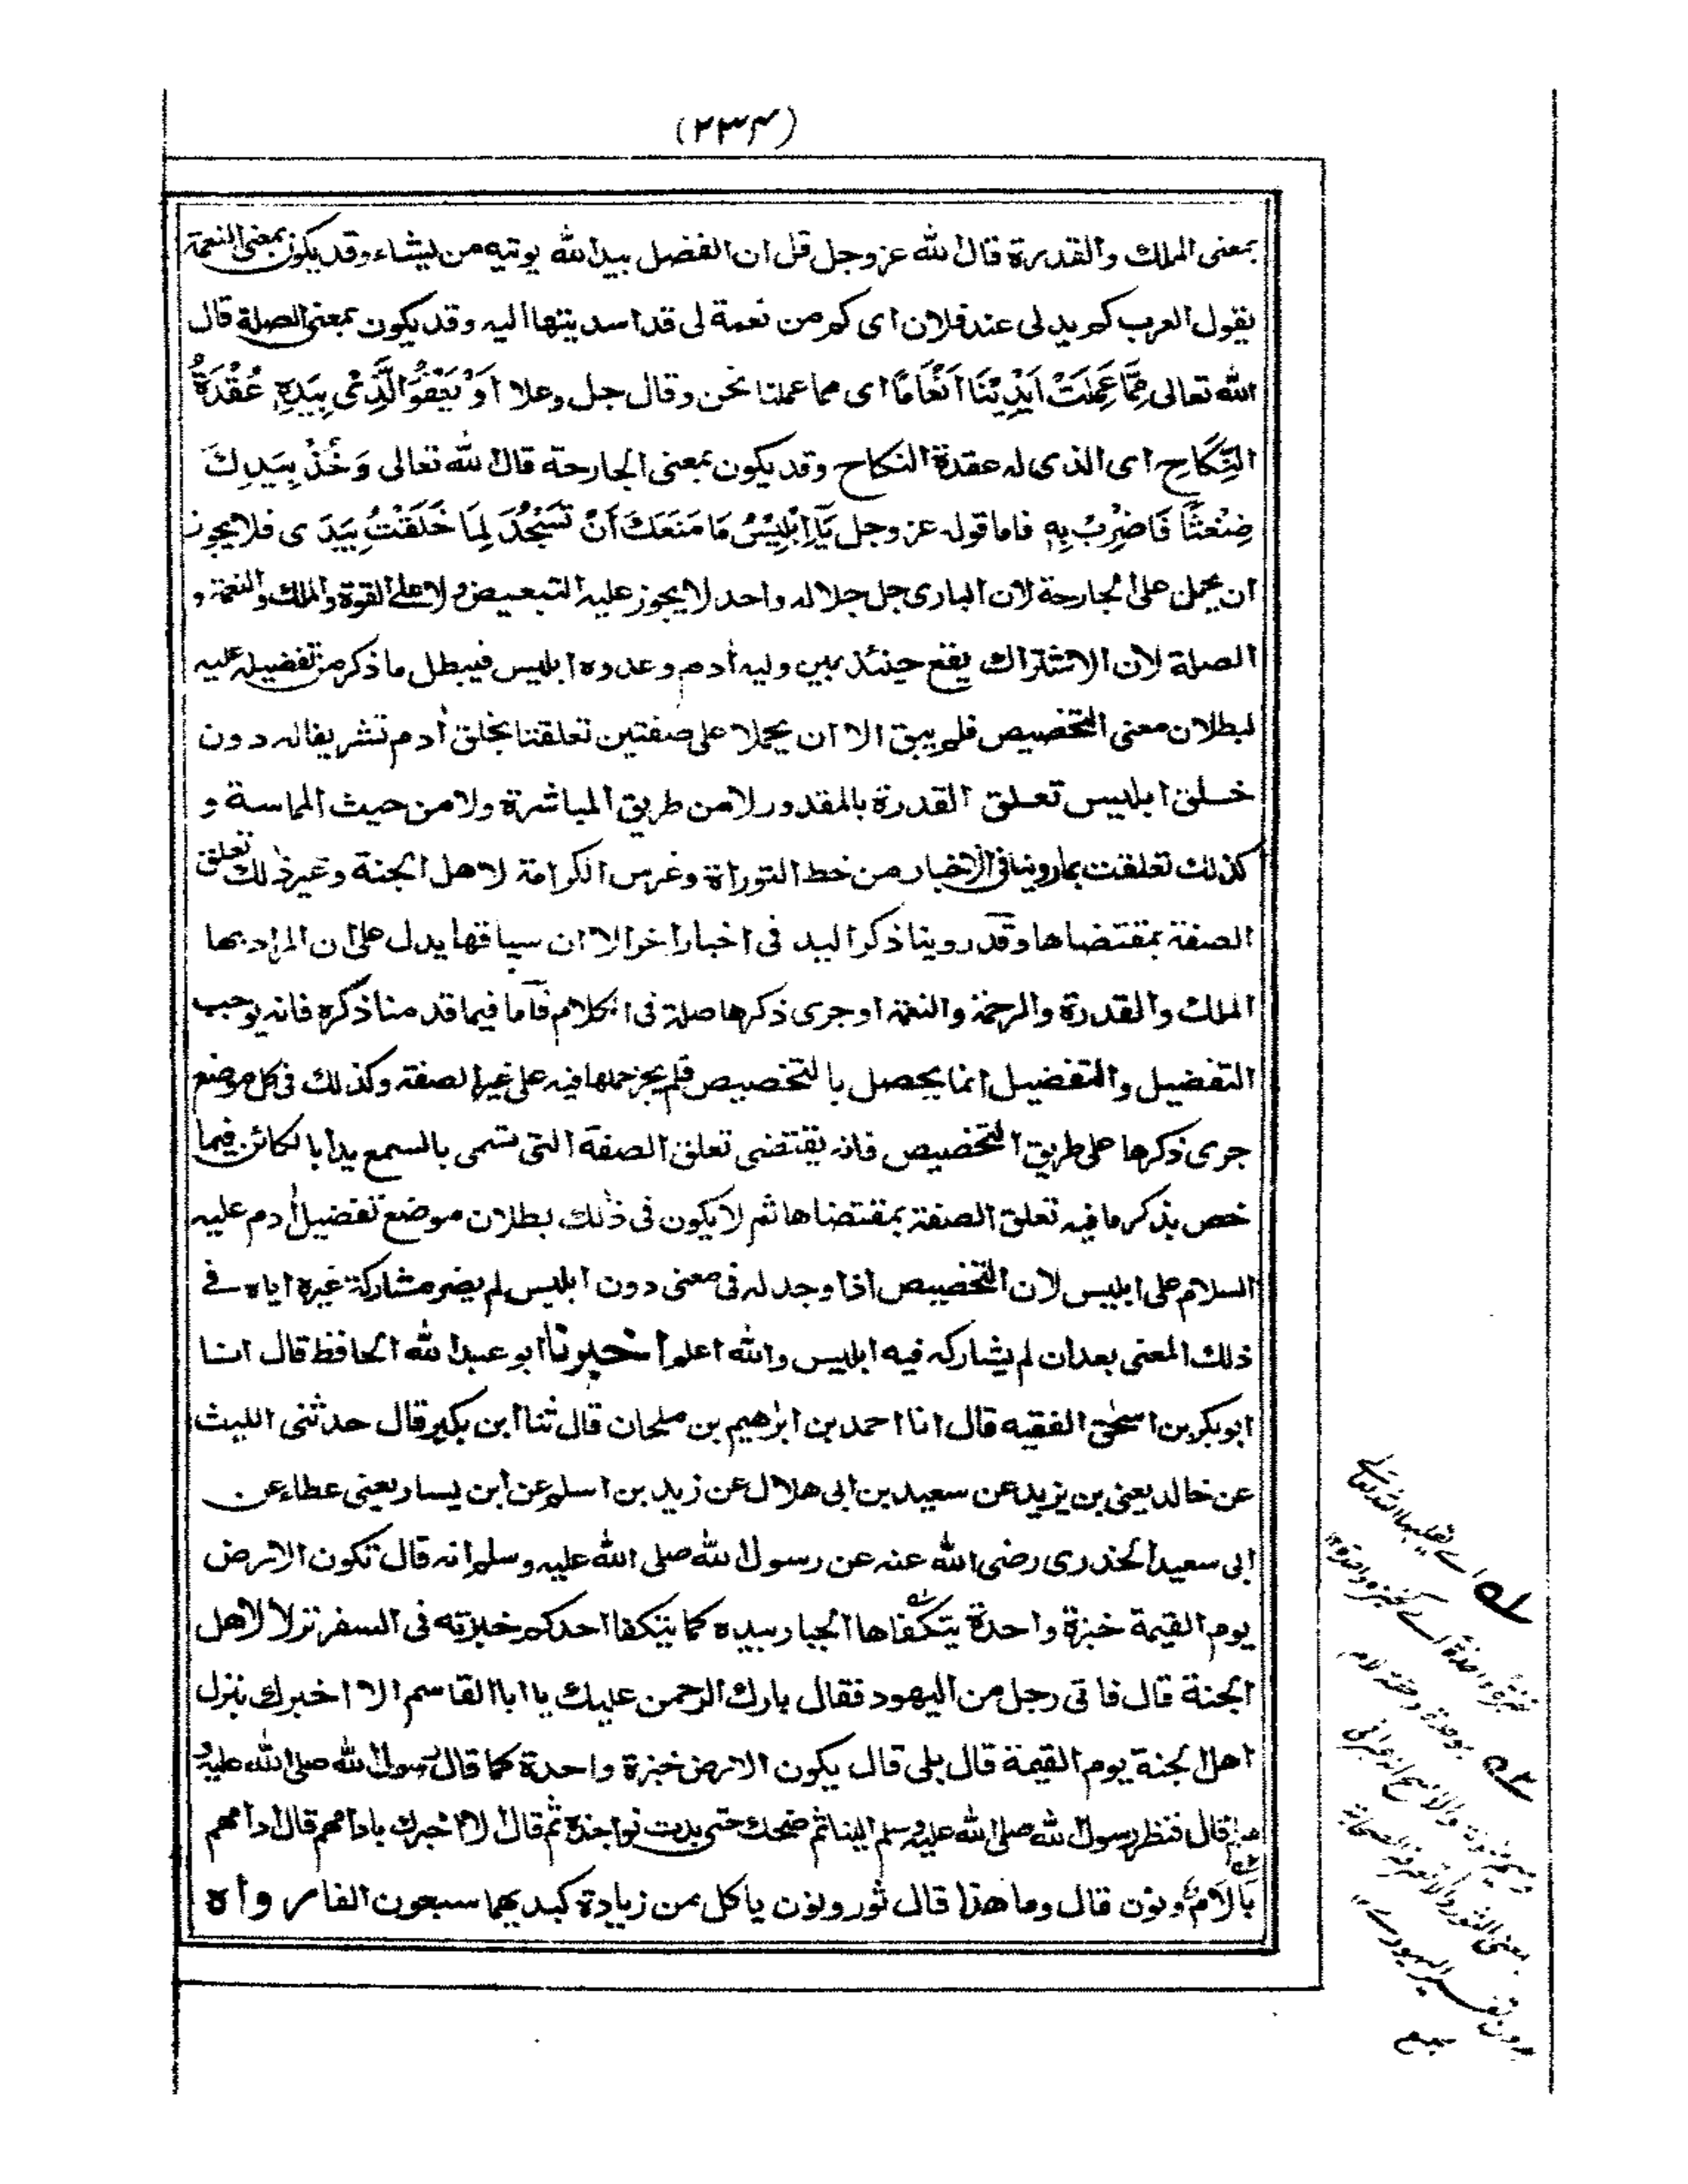 (۲۳۴)
بمعنى الملك والقدرة قال الله عز وجل قل ان الفضل بيد الله يوتيه من يشاء وقد يكون بمعنى النعمة
يقول العرب كم يد لى عند فلان اى كم من نعمة لى قد اسديتها اليه وقد يكون بمعنى الصلة قال
الله تعالى مِمَّا عَمِلَتْ اَيْدِيْنَا اَنْعَامًا اى مما عملنا نحن وقال جل وعلا اَوْ يَعْفُوَ الَّذِىْ بِيَدِهٖ عُقْدَةُ
النِّكَاحِ اى الذى له عقدة النكاح وقد يكون بمعنى الجارحة قال الله تعالى وَخُذْ بِيَدِكَ
ضِغْثًا فَاضْرِبْ بِهٖ فاما قوله عز وجل يَآ اِبْلِيْسُ مَا مَنَعَكَ اَنْ تَسْجُدَ لِمَا خَلَقْتُ بِيَدَى فلا يجوز
ان يحمل على الجارحة لان البارى جل جلاله واحد لا يجوز عليه التبعيض ولا على القوة والملك والنعمة و
الصلة لان الاشتراك يقع حينئذ بين وليه اٰدم وعدوه ابليس فيبطل ما ذكر من تفضيله عليه
لبطلان معنى التخصيص فلم يبق الا ان يحملا على صفتين تعلقتا بخلق اٰدم تشريفا له دون
خلق ابليس تعلق القدرة بالمقدور لا من طريق المباشرة ولا من حيث المماسة و
كذلك تعلقت بما روينا فى الاخبار من خط التوراة وغرس الكرامة لاهل الجنة وغير ذٰلك تعلق
الصفة بمقتضاها وقد روينا ذكر اليد فى اخبار اخر الا ان سياقها يدل على ان المراد بها
الملك والقدرة والرحمة والنعمة او جرى ذكرها صلة فى الكلام فاما فيما قدمنا ذكره فانه يوجب
التفضيل والتفضيل انما يحصل بالتخصيص فلم يجز حملها فيه على غير الصفة وكذلك فى كل موضع
جرى ذكرها على طريق التخصيص فانه يقتضى تعلق الصفة التى تسمى بالسمع يدا بالكائن فيما
خص بذكر ما فيه تعلق الصفة بمقتضاها ثم لا يكون فى ذٰلك بطلان موضع تفضيل اٰدم عليه
السلام على ابليس لان التخصيص اذا وجد له فى معنى دون ابليس لم يضر مشاركة غيره اياه فى
ذلك المعنى بعد ان لم يشاركه فيه ابليس والله اعلم اخبرنا ابو عبد الله الحافظ قال انا
ابو بكر بن اسحٰق الفقيه قال انا احمد بن ابرٰهيم بن ملحان قال ثنا ابن بكير قال حدثنى الليث
عن خالد يعنى بن يزيد عن سعيد بن ابى هلال عن زيد بن اسلم عن ابن يسار يعنى عطاء عن
ابى سعيد الخدرى رضى الله عنه عن رسول الله صلى الله عليه وسلم انه قال تكون الارض
يوم القيمة خبزة واحدة يتكفاها الجبار بيده كما يتكفا احدكم خبزته فى السفر نزلا لاهل
الجنة قال فاتى رجل من اليهود فقال بارك الرحمن عليك يا ابا القاسم الا اخبرك بنزل
اهل الجنة يوم القيمة قال بلى قال يكون الارض خبزة واحدة كما قال رسول الله صلى الله عليه و
سلم قال فنظر رسول الله صلى الله عليه وسلم الينا ثم ضحك حتى بدت نواجذه ثم قال الا اخبرك بادامهم قال ادامهم
بالام ونون قال وما هذا قال ثور ونون ياكل من زيادة كبدهما سبعون الفا رواه
له اے يقلبها الله تعالے